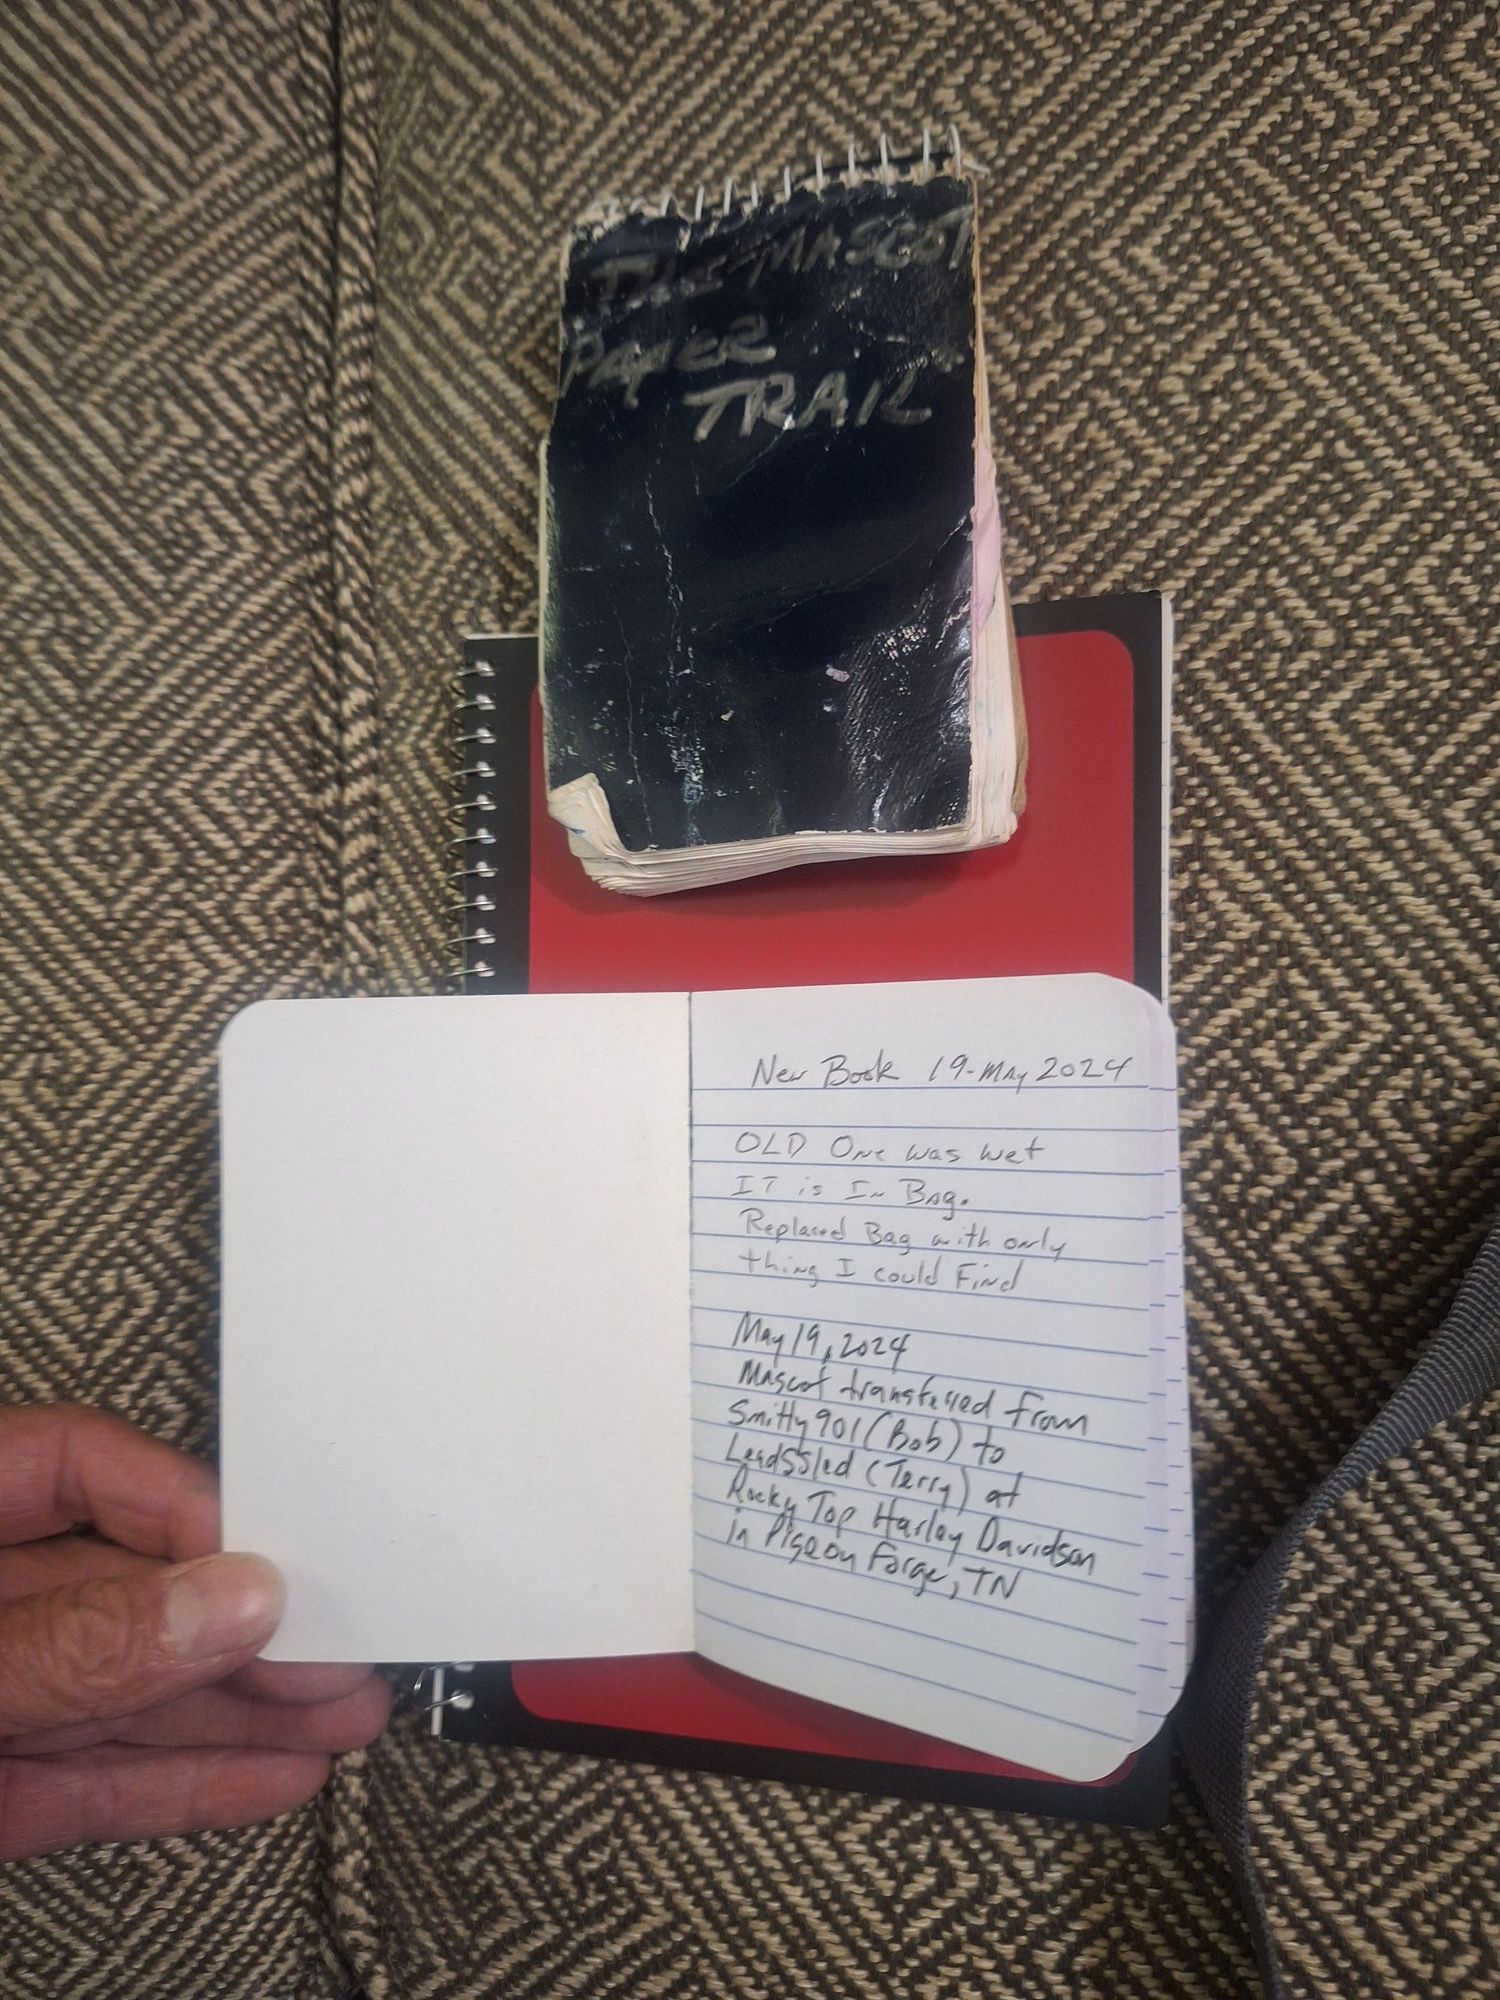 THE MASCOT
PAPER
TRAIL
New Book 19-May 2024
OLD One was wet
IT is In Bag.
Replaced Bag with only
thing I could Find
May 19, 2024
Mascot transferred from
Smitty901 (Bob) to
LeadSSled (Terry) at
Rocky Top Harley Davidson
in Pigeon Forge, TN